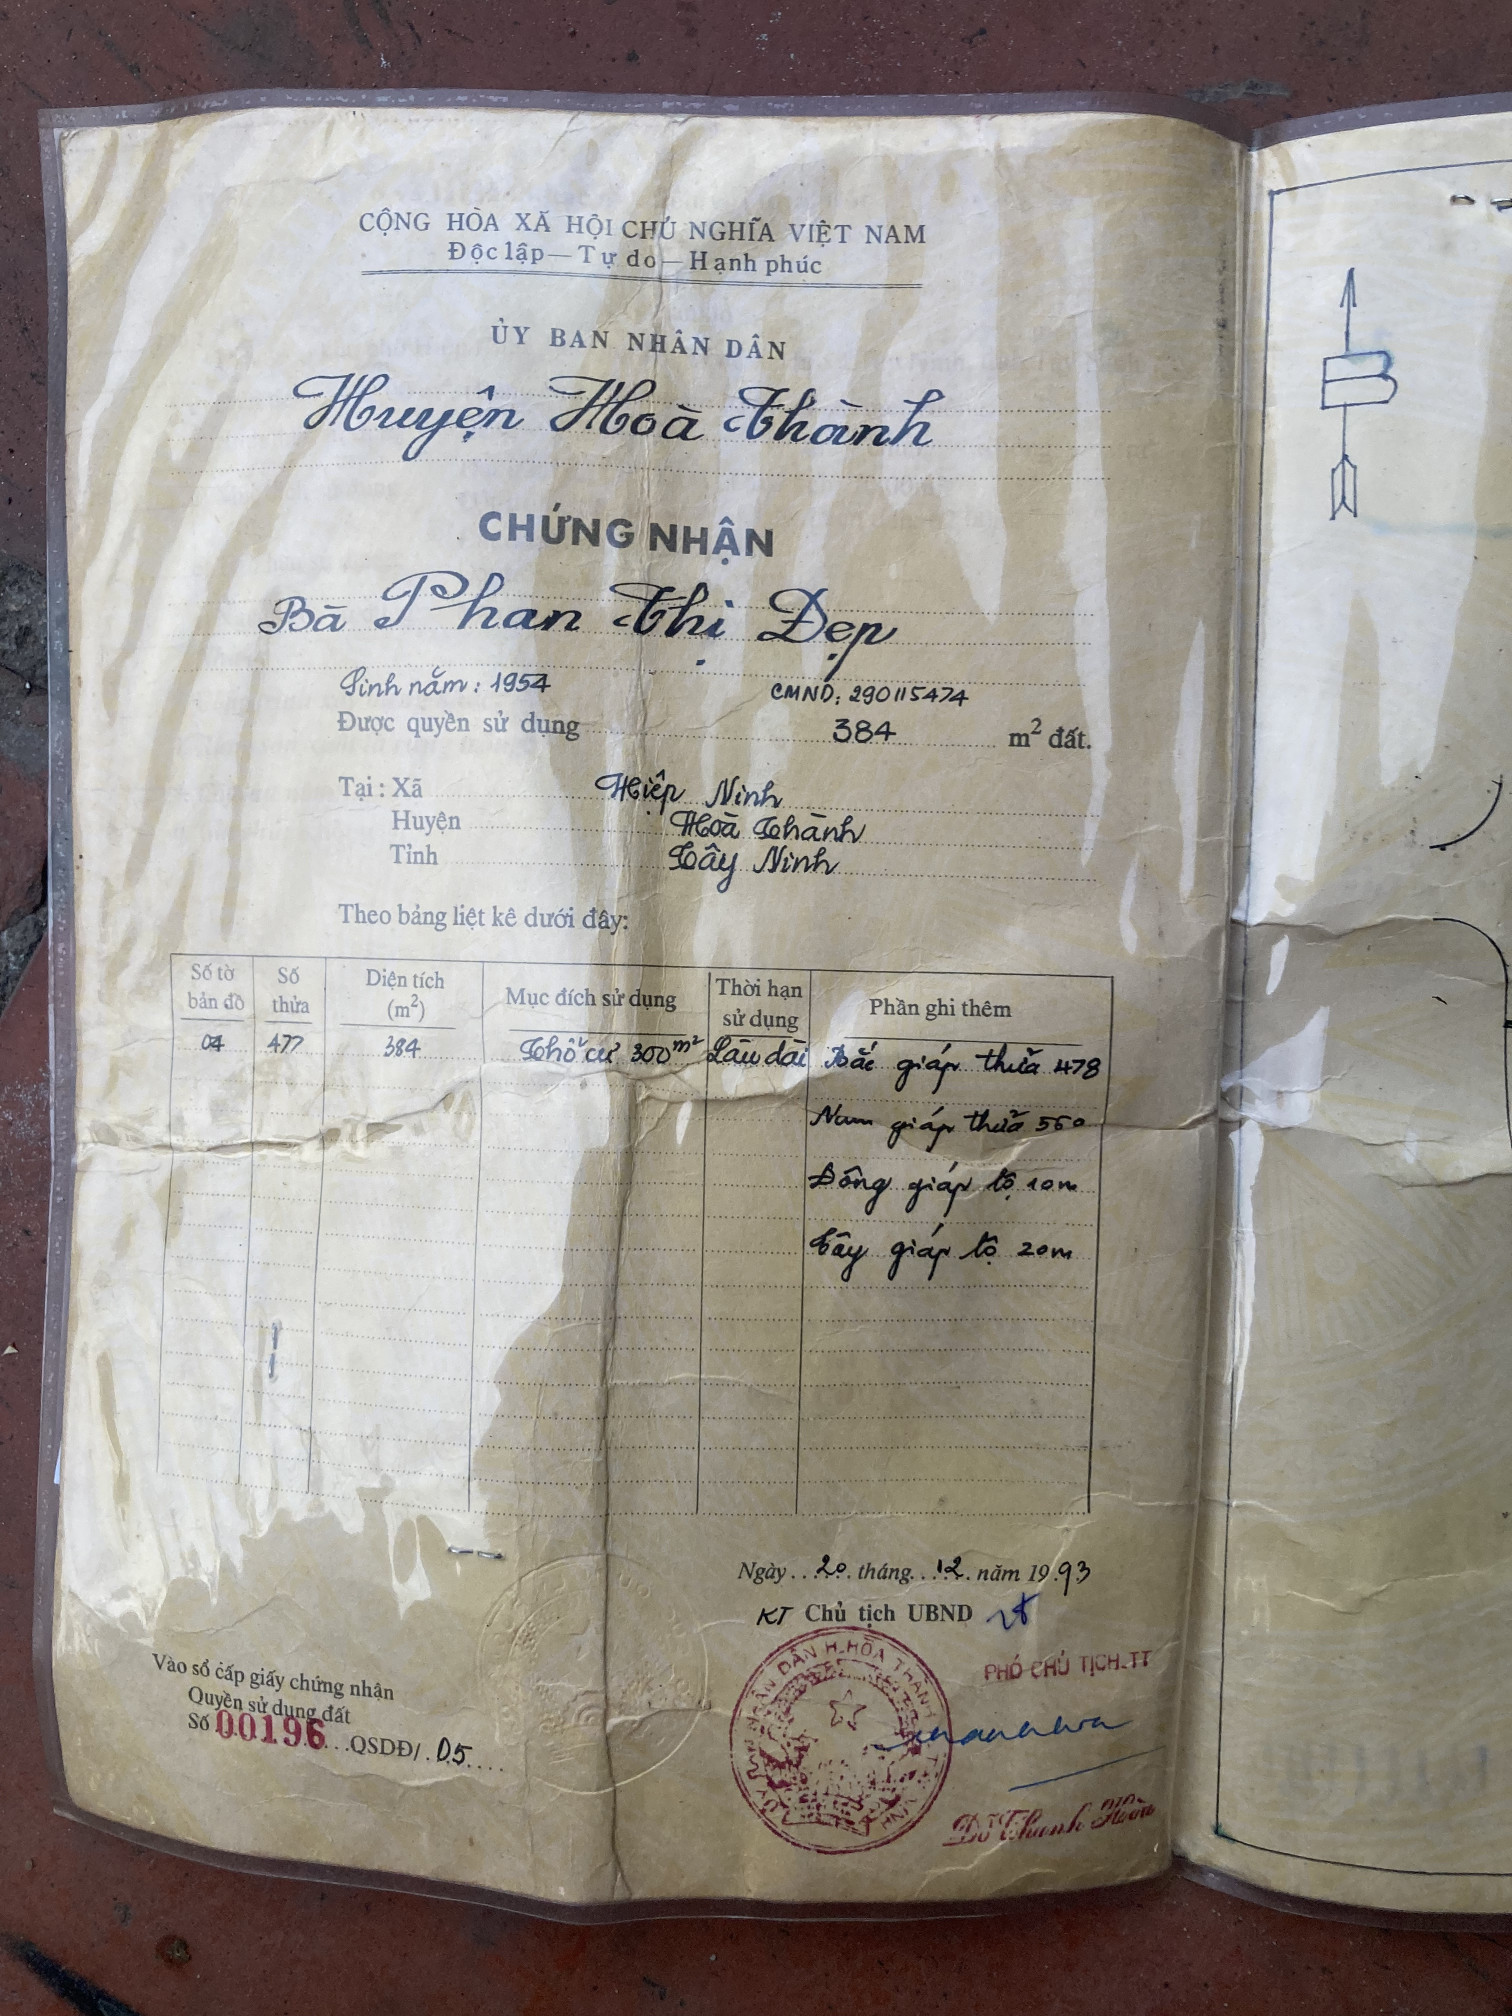 CỘNG HÒA XÃ HỘI CHỦ NGHĨA VIỆT NAM
Độc lập — Tự do — Hạnh phúc
ỦY BAN NHÂN DÂN
Huyện Hoà Thành
CHỨNG NHẬN
Bà Phan Thị Đẹp
Sinh năm: 1954 CMND: 290115474
Được quyền sử dụng 384 m² đất.
Tại: Xã Hiệp Ninh
Huyện Hoà Thành
Tỉnh Tây Ninh
Theo bảng liệt kê dưới đây:
Số tờ bản đồ Số thửa Diện tích (m²) Mục đích sử dụng Thời hạn sử dụng Phần ghi thêm
04 477 384 Thổ cư 300m² Lâu dài Bắc giáp thửa 478
Nam giáp thửa 560
Đông giáp lộ 10m
Tây giáp lộ 20m
Ngày 20 tháng 12 năm 1993
KT Chủ tịch UBND
PHÓ CHỦ TỊCH.TT
Vào sổ cấp giấy chứng nhận
Quyền sử dụng đất
Số 00196 QSDĐ/ 05
ỦY BAN NHÂN DÂN H.HÒA THÀNH T. TÂY NINH
B